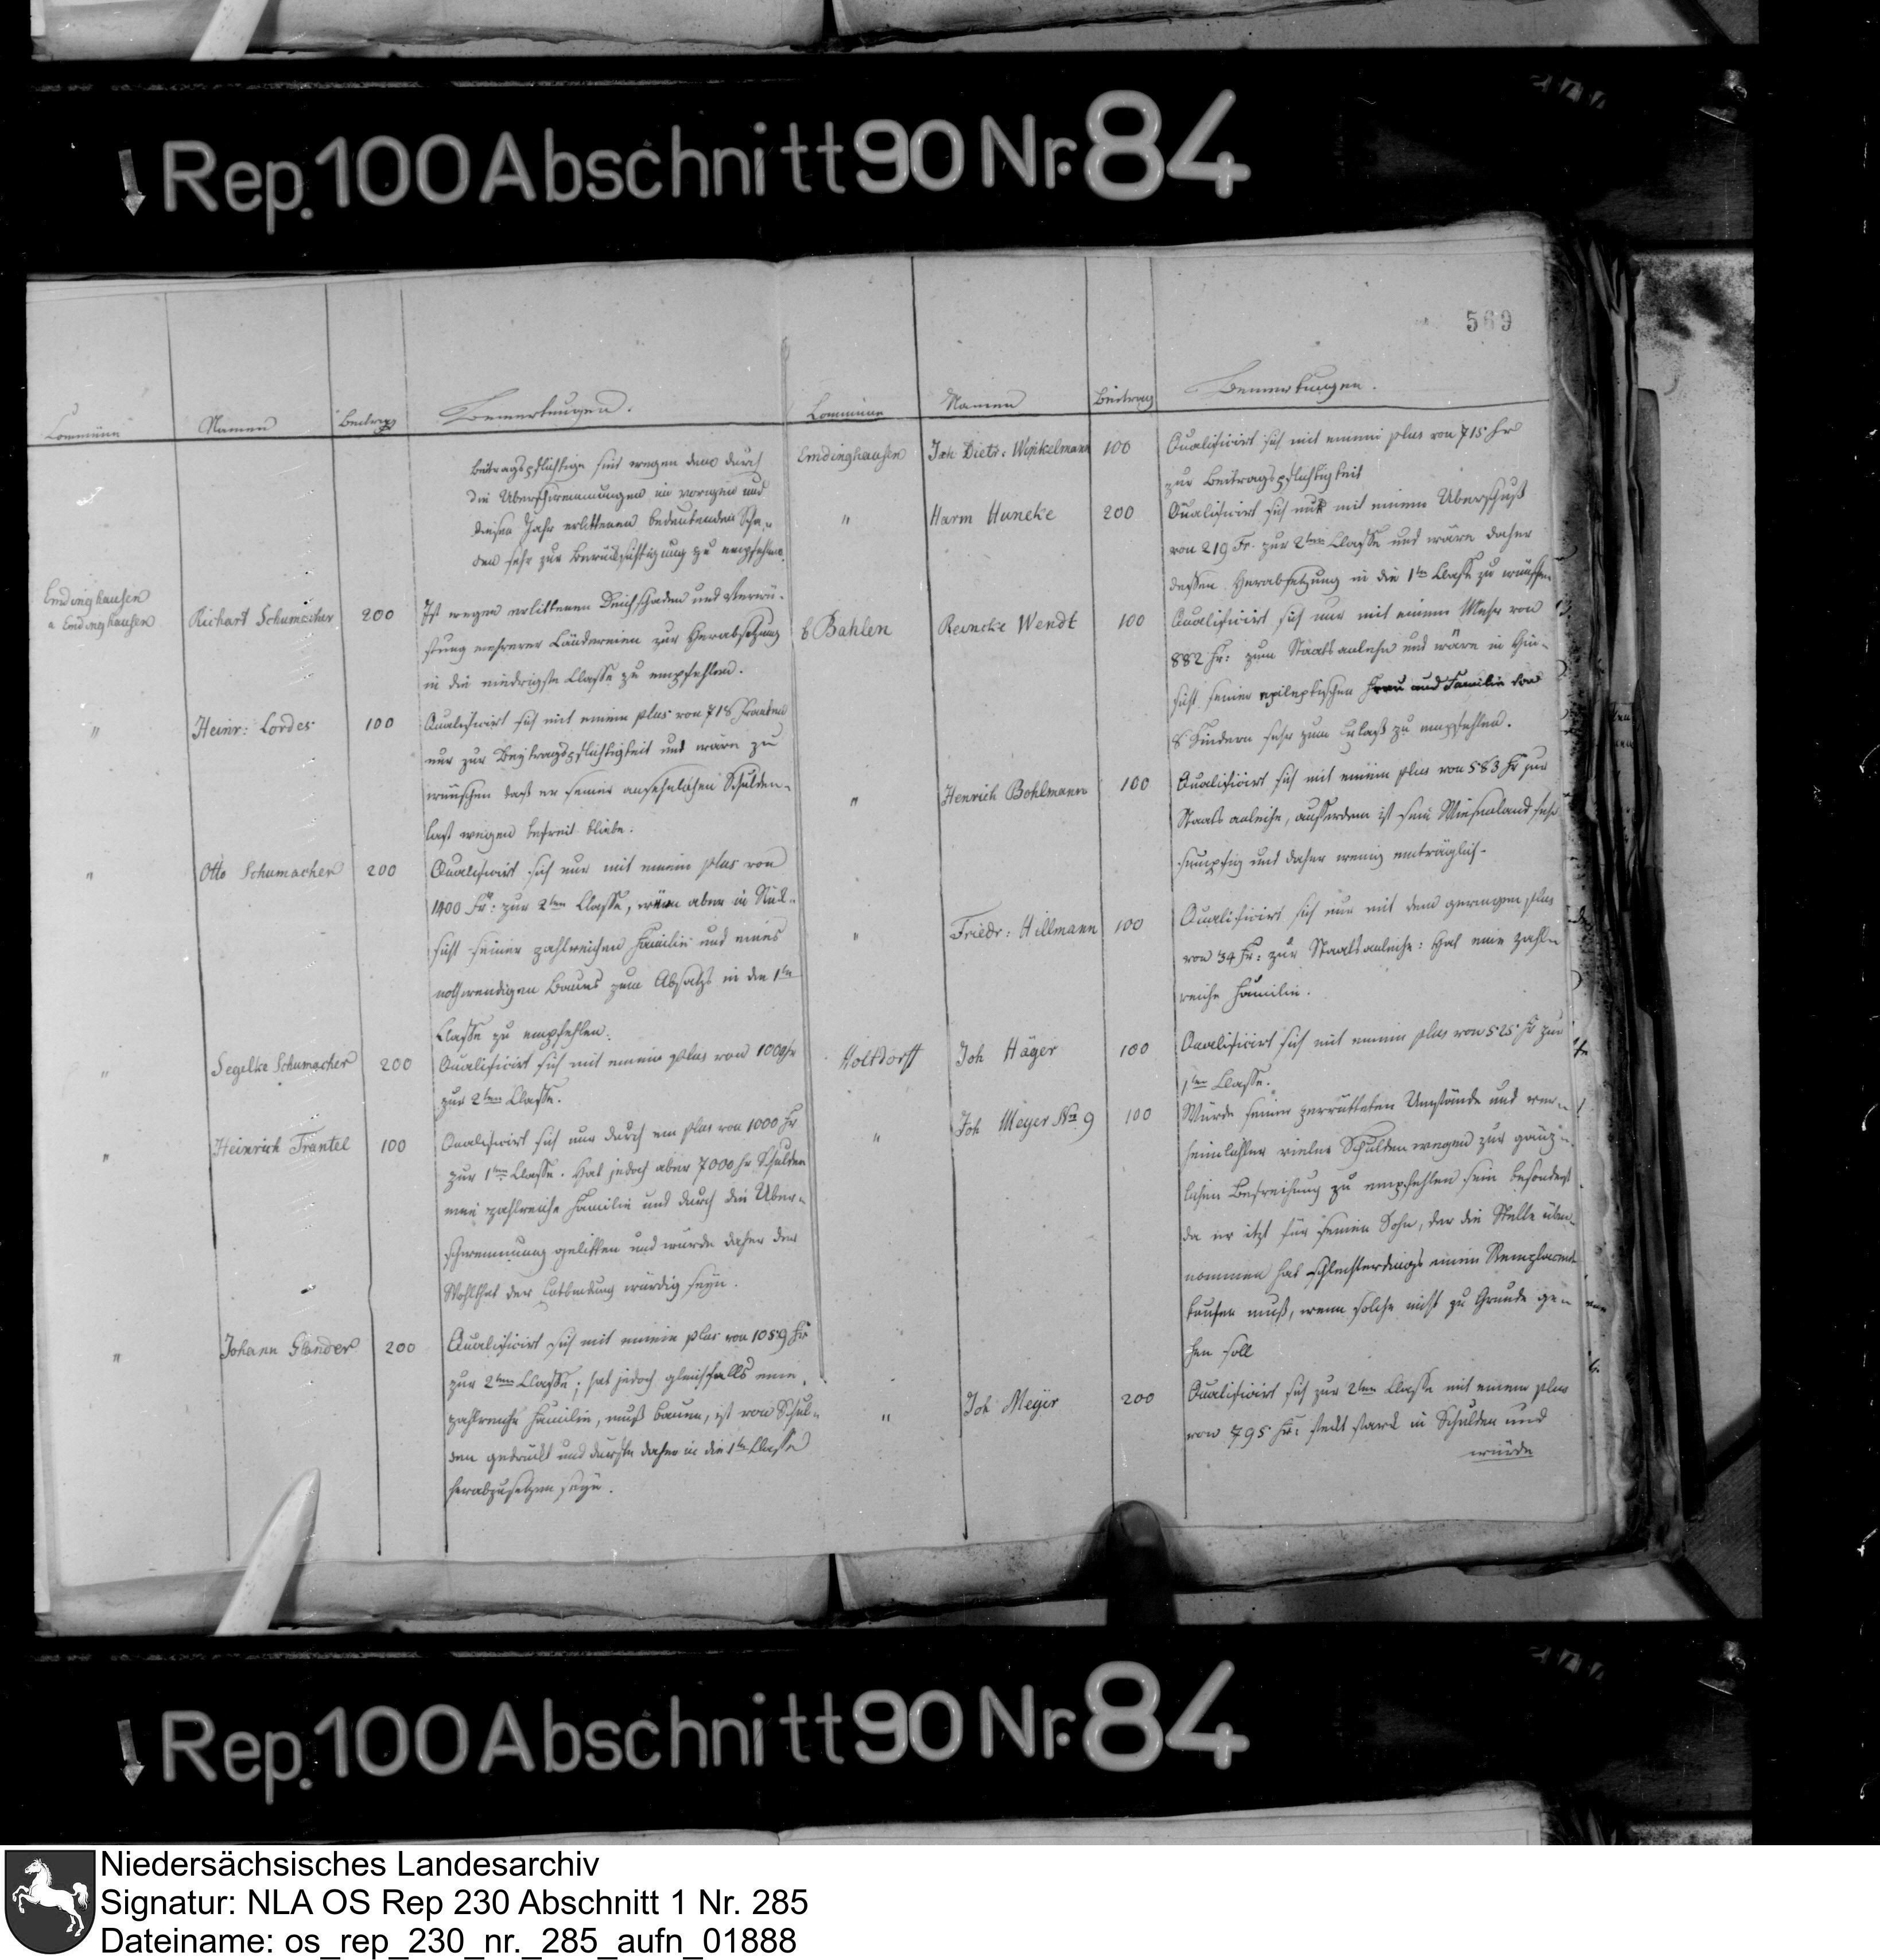 Rep. 100 Abschnitt 90 Nr. 84
569
Commüne Namen Beitrag Bemerkungen.
beitragspflichtige sind wegen dem durch
die Überschwemmungen im vorigen und
diesen Jahr erlittenen bedeutenden Scha-
den sehr zur Berücksichtigung zu empfehlen
Emdinghausen
a Emdinghausen Richart Schumacher 200 Ist wegen erlittenen Deichschaden und Verwü-
stung mehrerer Ländereien zur Herabsetzung
in die niedrigste Classe zu empfehlen.
" Heinr: Cordes 100 Qualificirt sich mit einem plus von 718 Franken
nur zur Beytragspflichtigkeit und wäre zu
wünschen daß er seiner ansehnlichen Schulden-
last wegen befreit bliebe.
" Otto Schumacher 200 Qualificirt sich nur mit einem plus von
1400 Fr: zur 2ten Classe, wäre aber in Rück-
sicht seiner zahlreichen Familie und eines
nothwendigen Baues zum Absatze in die 1te
Classe zu empfehlen.
" Segelke Schumacher 200 Qualificirt sich mit einem plus von 1000 fr
zur 2ten Classe.
" Heinrich Trantel 100 Qualificirt sich nur durch ein plus von 1000 fr
zur 1ten Classe. Hat jedoch aber 7000 fr Schulden
eine zahlreiche Familie und durch die Über-
schwemmung gelitten und würde daher der
Wohlthat der Entbindung würdig seyn.
" Johann Glander 200 Qualificirt sich mit einem plus von 1059 fr
zur 2ten Classe; hat jedoch gleichfalls eine
zahlreiche Familie, muß bauen, ist von Schul-
den gedrückt und dürfte daher in die 1te Classe
herabzusetzen seyn.
Commüne Namen Beitrag Bemerkungen.
Emdinghausen Joh Dietr: Winkelmann 100 Qualificirt sich mit einem plus von 715 fr
zur Beitragspflichtigkeit
" Harm Huneke 200 Qualificirt sich nur mit einem Überschuß
von 219 Fr. zur 2ten Classe und wäre daher
dessen Herabsetzung in die 1te Classe zu wünschen
b Bahlen Reincke Wendt 100 Qualificirt sich nur mit einem Mehr von
882 fr: zum Staatsanlehn und wäre in Hin-
sicht seiner epileptischen Frau und Familie von
8 Kindern sehr zum Erlaß zu empfehlen.
" Henrich Bohlmann 100 Qualificirt sich mit einem plus von 583 fr zur
Staats anleihe, außerdem ist sein Wiesenland sehr
sumpfig und daher wenig einträglich.
" Friedr: Hillmann 100 Qualificirt sich nur mit dem geringen plus
von 34 fr: zur Staatsanleihe: Hat eine zahl-
reiche Familie.
Holtdorff Joh Häger 100 Qualificirt sich mit einem plus von 525 fr zur
1ten Classe.
" Joh Meyer No. 9 100 Würde seiner zerrütteten Umstände und ver-
heimlichter vieler Schulden wegen zur gänz-
lichen Befreihung zu empfehlen sein besonders
da er itzt für seinen Sohn, der die Stelle über-
nommen hat schlechterdings einen Remplacant
kaufen muß, wenn solche nicht zu Grunde ge-
hen soll
" Joh Meyer 200 Qualificirt sich zur 2ten Classe mit einem plus
von 795 fr: steckt starck in Schulden und
würde
Rep. 100 Abschnitt 90 Nr. 84
Niedersächsisches Landesarchiv
Signatur: NLA OS Rep 230 Abschnitt 1 Nr. 285
Dateiname: os_rep_230_nr._285_aufn_01888